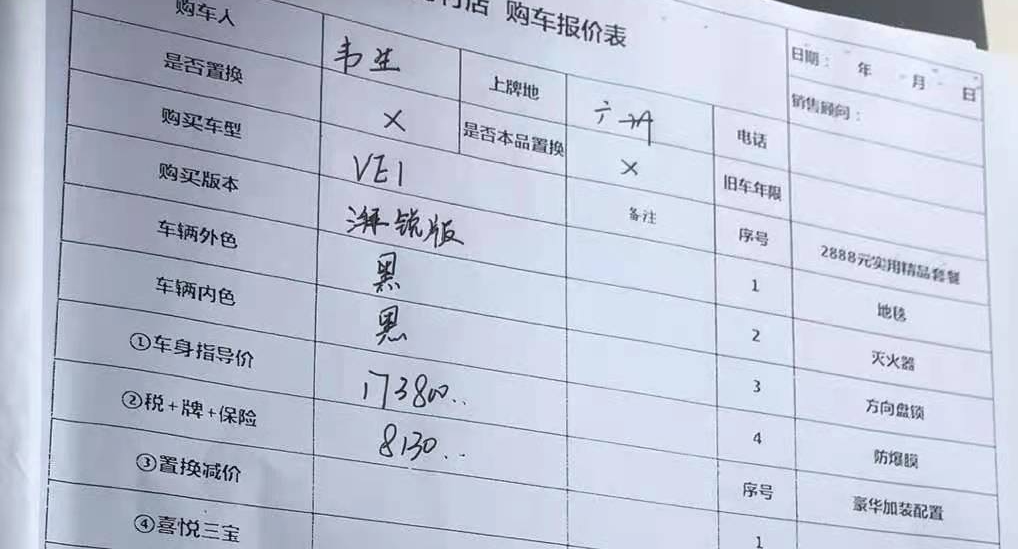 店 购车报价表
购车人 韦生 上牌地 电话
日期： 年 月 日
销售顾问：
是否置换 × 是否本品置换 × 旧车年限
购买车型 VE1 备注 序号 2888元实用精品套餐
购买版本 锐版 1 地毯
车辆外色 黑 2 灭火器
车辆内色 黑 3 方向盘锁
①车身指导价 173800.. 4 防爆膜
②税+牌+保险 8130.. 序号 豪华加装配置
③置换减价 1
④喜悦三宝